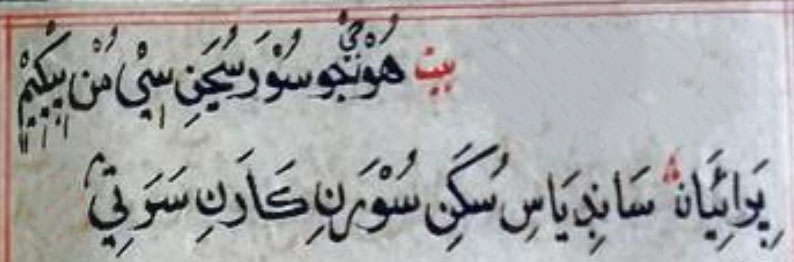 بيت هُوْنجو سُوْرَ سُڃَنِ سيْ مُنْ پيڪيمْ
پِرَائِيَان سَانڍِيَاسِ سُکَنِ سُوْرَنِ ڪَارَنِ سَرَتِيْ